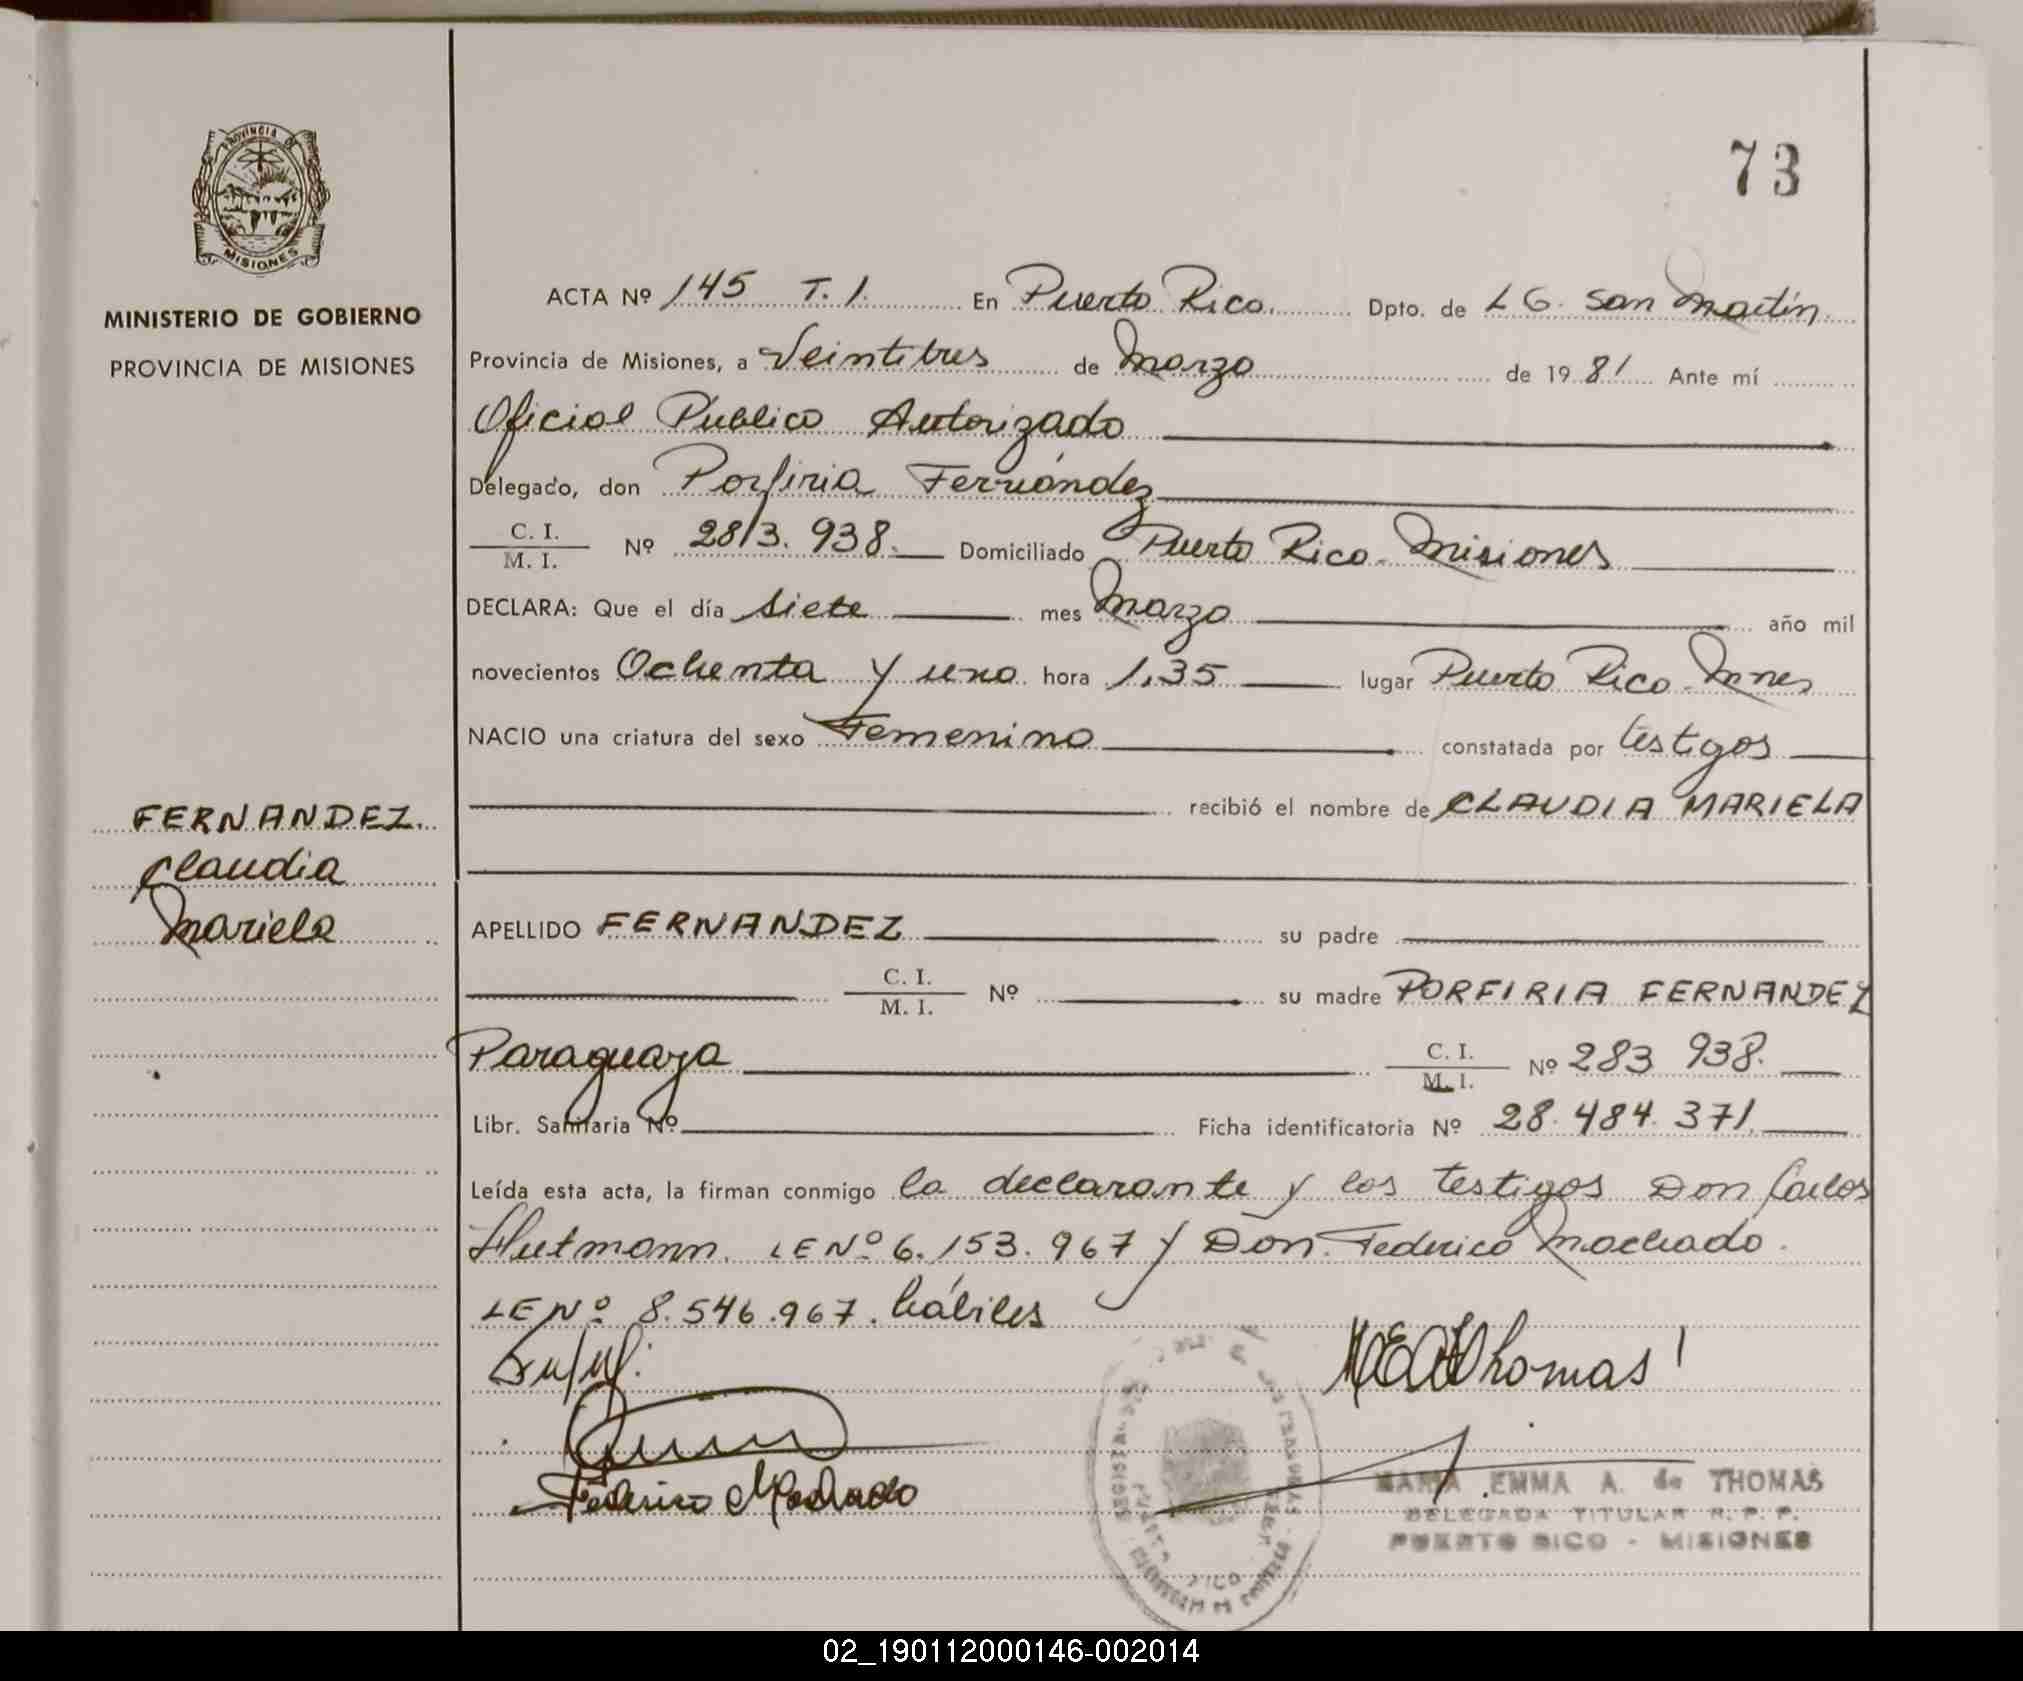 73
PROVINCIA DE
MISIONES
MINISTERIO DE GOBIERNO
PROVINCIA DE MISIONES
ACTA Nº 145 T. 1. En Puerto Rico. Dpto. de L G. San Martín.
Provincia de Misiones, a Veintitres de Marzo de 1981 Ante mí
Oficial Publico Autorizado
Delegado, don Porfiria Fernández
C. I.
M. I. Nº 283.938. Domiciliado Puerto Rico. Misiones
DECLARA: Que el día siete mes Marzo año mil
novecientos Ochenta y uno hora 1,35 lugar Puerto Rico Mnes
NACIO una criatura del sexo Femenino constatada por testigos
recibió el nombre de CLAUDIA MARIELA
FERNANDEZ
Claudia
Mariela
APELLIDO FERNANDEZ su padre
C. I.
M. I. Nº su madre PORFIRIA FERNANDEZ
Paraguaya C. I.
M. I. Nº 283 938.
Libr. Sanitaria Nº Ficha identificatoria Nº 28.484.371.
Leída esta acta, la firman conmigo la declarante y los testigos Don Carlos
Hutmann. LE Nº 6.153.967 y Don. Federico Machado.
LE Nº 8.546.967. hábiles
MEAdThomas
Federico Machado
MARIA EMMA A. de THOMAS
DELEGADA TITULAR R. P. P.
PUERTO RICO - MISIONES
02_190112000146-002014